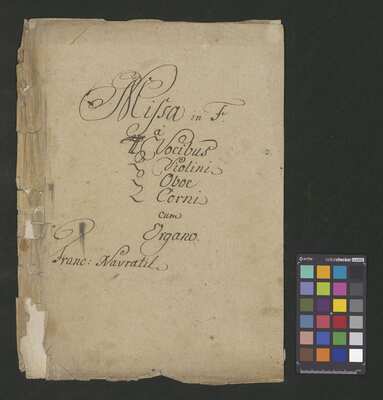 Missa in F.
à
4 Vocibus
2 Violini
2 Oboe
2 Corni
cum
Organo.
Franc: Navratil